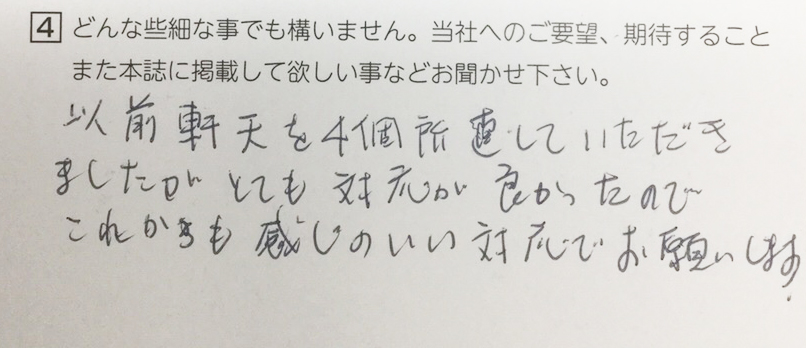 4 どんな些細な事でも構いません。当社へのご要望、期待すること
また本誌に掲載して欲しい事などお聞かせ下さい。
以前軒天を4個所直していただき
ましたがとても対応が良かったので
これからも感じのいい対応でお願いします。